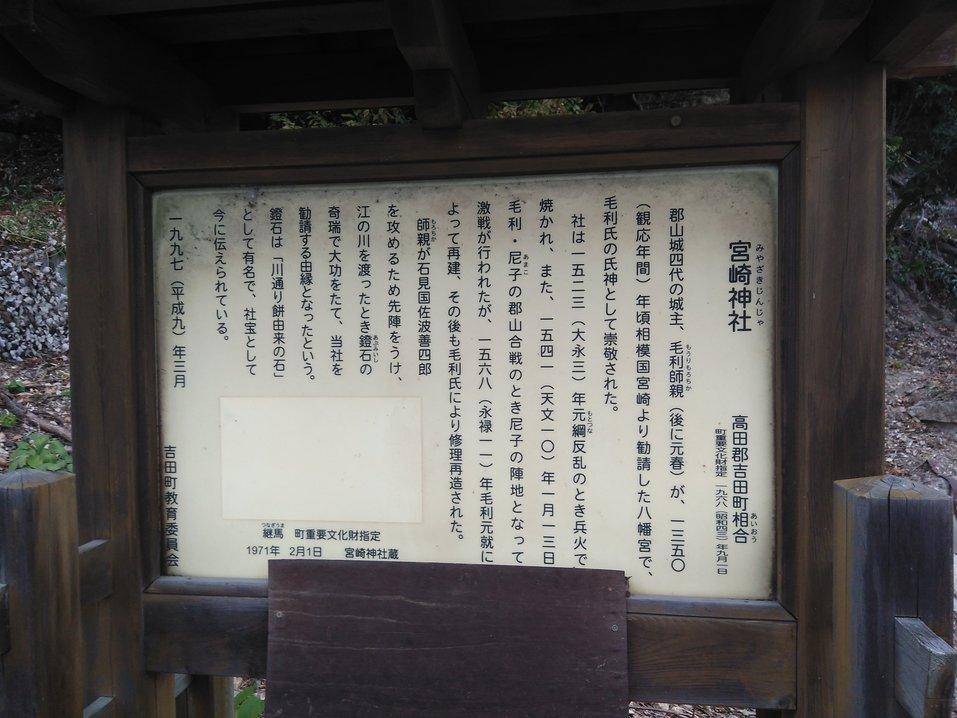 宮崎神社
みやざきじんじゃ
高田郡吉田町相合
あいおう
町重要文化財指定 一九六八(昭和四三)年九月一日
郡山城四代の城主、毛利師親(後に元春)が、一三五〇
もうりもろちか
(観応年間)年頃相模国宮崎より勧請した八幡宮で、
毛利氏の氏神として崇敬された。
社は一五二三(大永三)年元綱反乱のとき兵火で
もとつな
焼かれ、また、一五四一(天文一〇)年一月一三日
毛利・尼子の郡山合戦のとき尼子の陣地となって
あまこ
激戦が行われたが、一五六八(永禄一一)年毛利元就に
よって再建、その後も毛利氏により修理再造された。
師親が石見国佐波善四郎
もろちか
を攻めるため先陣をうけ、
江の川を渡ったとき鐙石の
あぶみいし
奇瑞で大功をたて、当社を
勧請する由縁となったという。
鐙石は「川通り餅由来の石」
として有名で、社宝として
今に伝えられている。
一九九七(平成九)年三月
吉田町教育委員会
つなぎうま
継馬 町重要文化財指定
1971年 2月1日 宮崎神社蔵